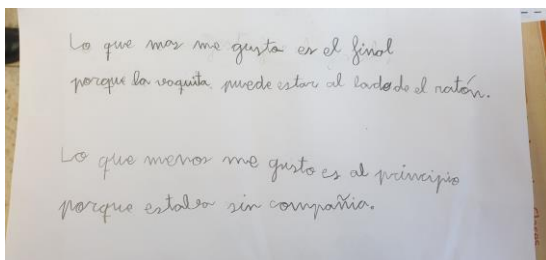 Lo que mas me gusta es el final
porque la vaquita puede estar al lado de el ratón.
Lo que menos me gusto es al principio
porque estaba sin compañia.